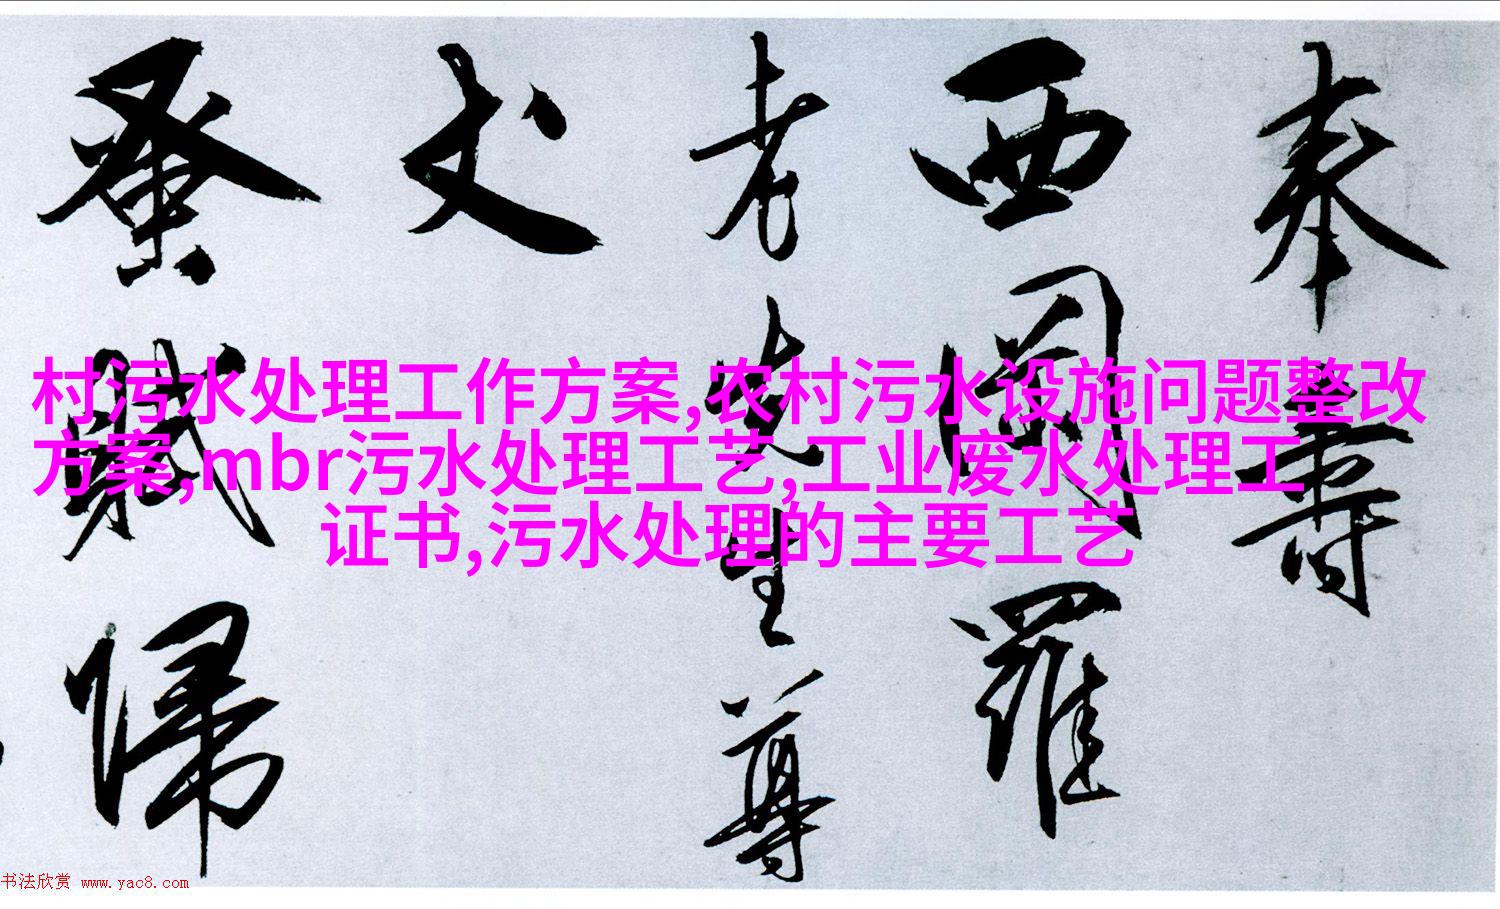 奉壽
西羅
老先生尊
丈
蚤賦歸
村污水处理工作方案,农村污水设施问题整改
方案,mbr污水处理工艺,工业废水处理工
证书,污水处理的主要工艺
书法欣赏 www.yac8.com